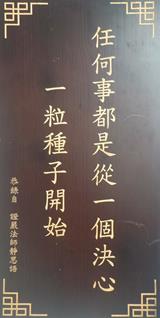 任何事都是從一個決心
一粒種子開始
恭錄自 證嚴法師靜思語